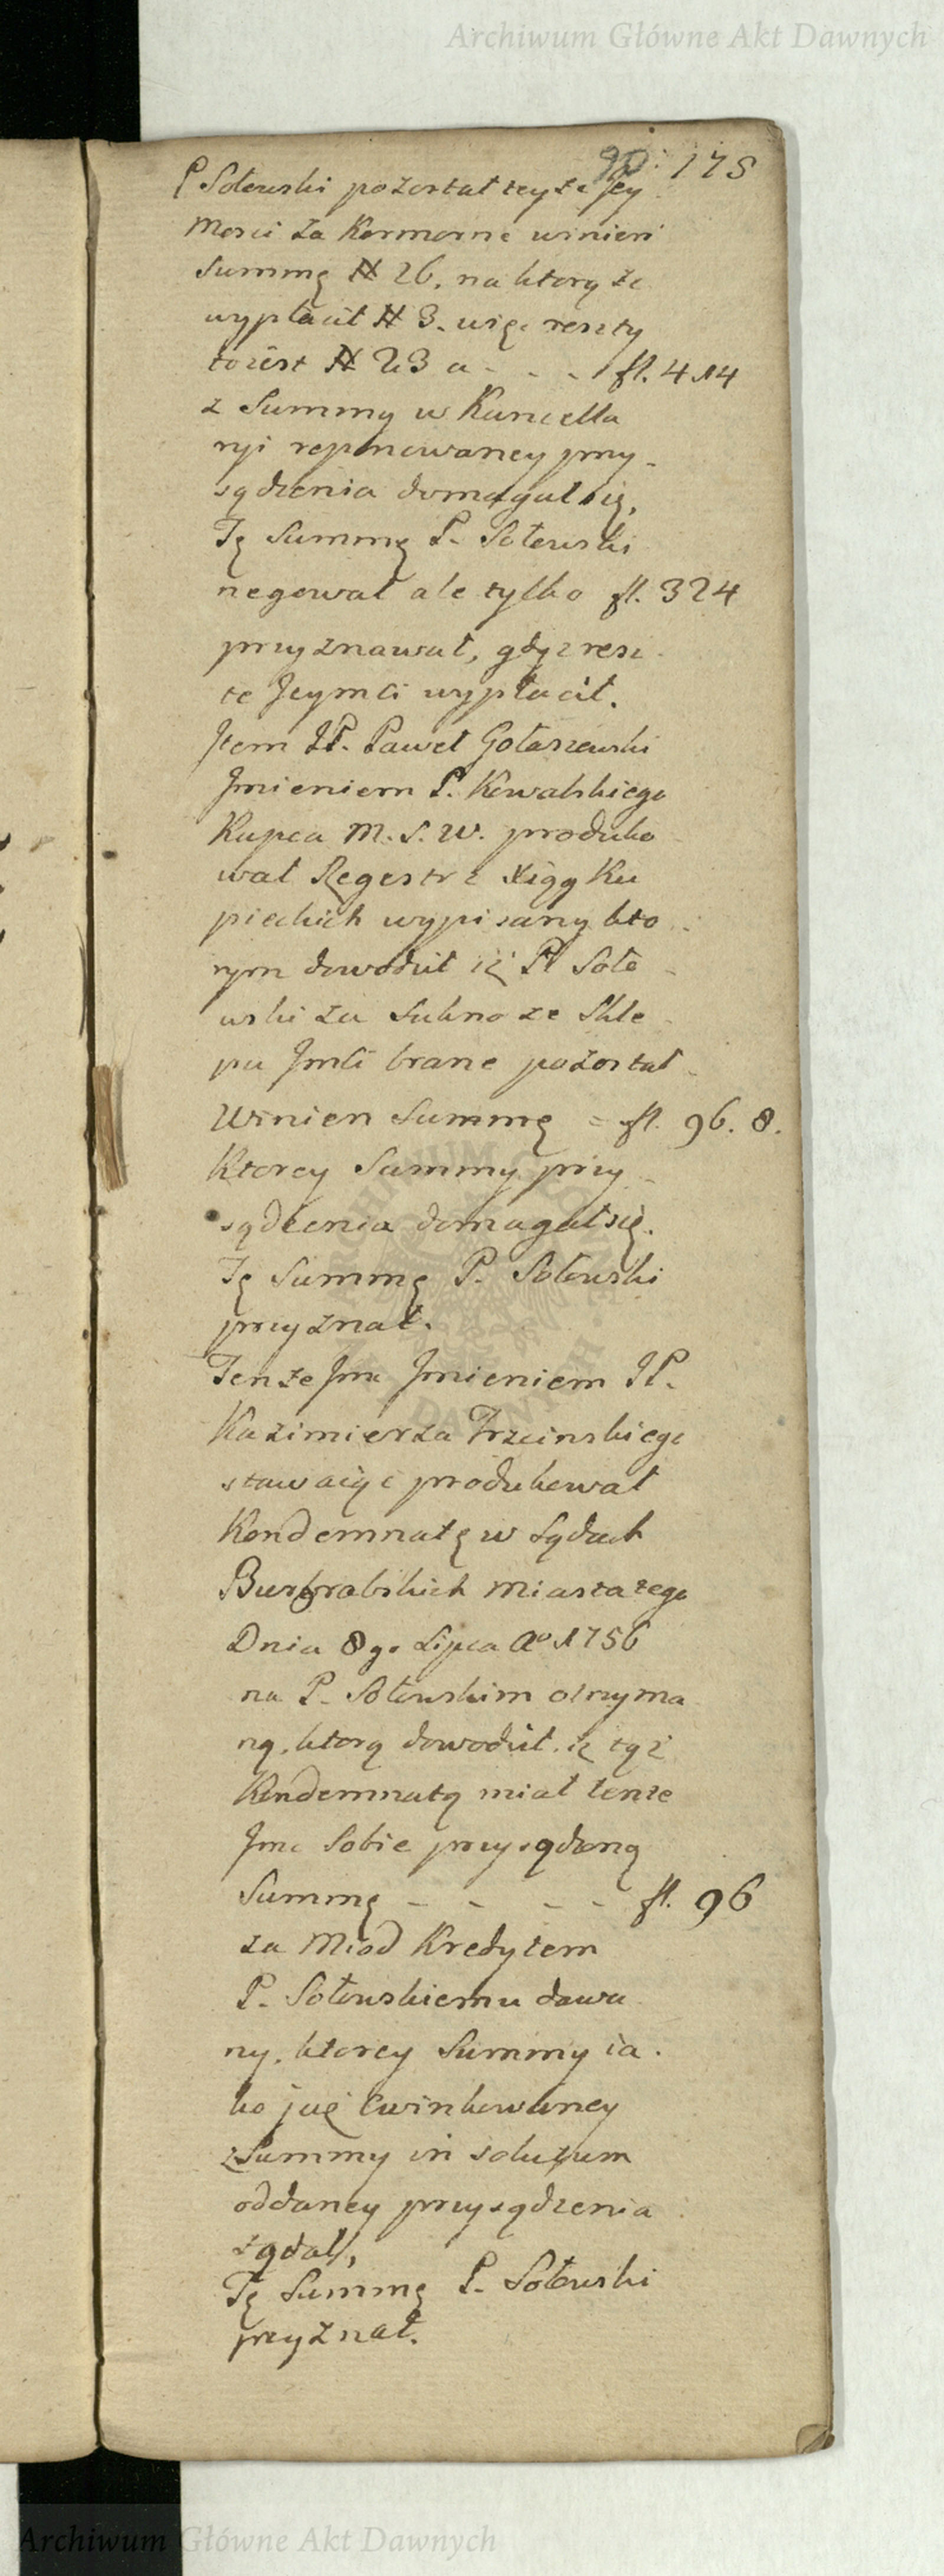 Archiwum Główne Akt Dawnych
90: 175
P Sołewski pozostał teyże Jey
Mosci za Komorne winien
Summę # 26. na ktorą że
wypłacił # 3. więc reszty
to iest # 23 a - - - fl. 414
z Summy w Kancella
ryi reponowaney przy-
sądzenia domagał się,
Tę Summę P. Sołewski
negował ale tylko fl. 324
przyznawał, gdyż resz
te Jeymci wypłacił.
Jtem JP. Paweł Gołaszewski
Jmieniem P. Kowalskiego
Kupca M. S. W. produko
wał Regestr z Xiąg Ku
pieckich wypisany kto
rym dowodził iż P. Sołe
wski za Sukno ze Skle
pu Jmci brane pozostał
Winien Summę = fl. 96. 8.
Ktorey Summy przy
sądzenia domagał się.
Tę Summę P. Sołewski
przyznał.
Tenże Jmc Jmieniem JP.
Kazimierza Trzcinskiego
stawaiąc produkował
Kondemnatę w Sądach
Burgrabskich Miasta tego
Dnia 8go Lipca Ao 1756
na P. Sołewskim otrzyma
ną, ktorą dowodził, iż tąż
Kondemnatą miał tenże
Jmc Sobie przysądzoną
Summę - - - - fl. 96
za Miod Kredytem
P. Sołewskiemu dawa
ny, ktorey Summy ia.
ko już Ewinkowaney
z Summy in solutum
oddaney przysądzenia
żądał,
Tę Summę P. Sołewski
przyznał.
Archiwum Główne Akt Dawnych